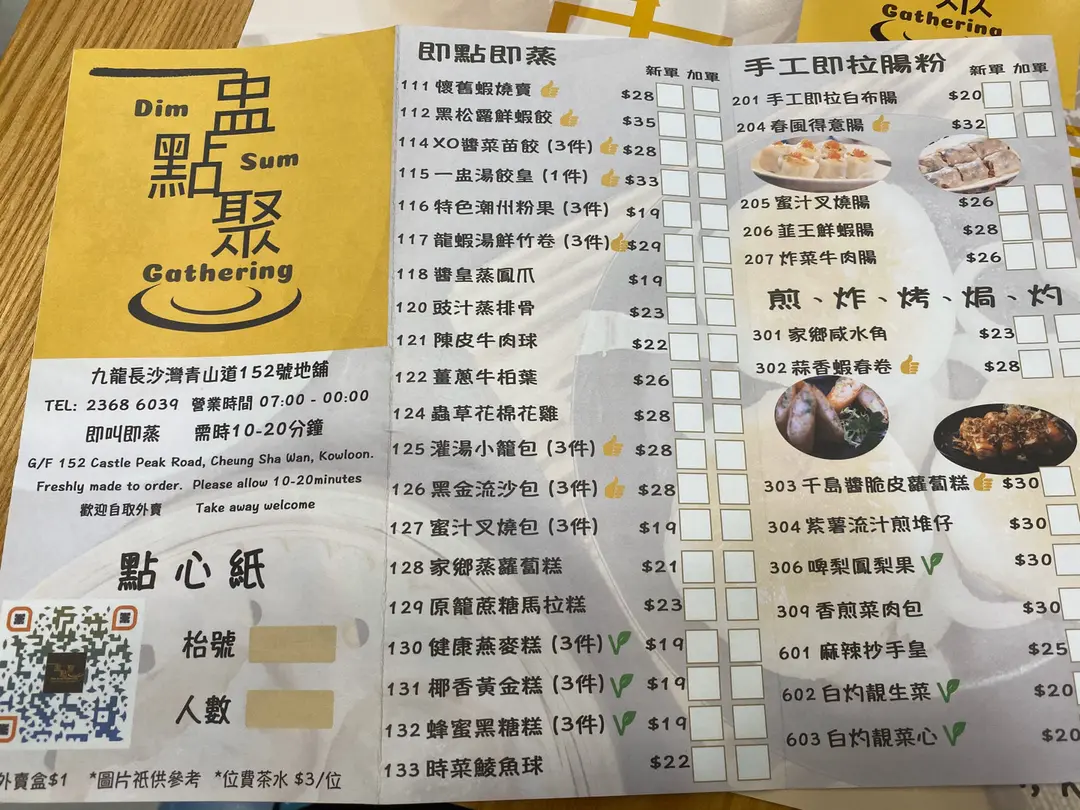 Gathering
一盅點聚
Dim
Sum
Gathering
九龍長沙灣青山道152號地舖
TEL: 2368 6039 營業時間 07:00 - 00:00
即叫即蒸 需時10-20分鐘
G/F 152 Castle Peak Road, Cheung Sha Wan, Kowloon.
Freshly made to order. Please allow 10-20minutes
歡迎自取外賣 Take away welcome
點心紙
枱號
人數
外賣盒$1 *圖片祇供參考 *位費茶水 $3/位
即點即蒸
新單 加單
111 懷舊蝦燒賣 $28
112 黑松露鮮蝦餃 $35
114 XO醬菜苗餃 (3件) $28
115 一盅湯餃皇 (1件) $33
116 特色潮州粉果 (3件) $19
117 龍蝦湯鮮竹卷 (3件) $29
118 醬皇蒸鳳爪 $19
120 豉汁蒸排骨 $23
121 陳皮牛肉球 $22
122 薑蔥牛柏葉 $26
124 蟲草花棉花雞 $28
125 灌湯小籠包 (3件) $28
126 黑金流沙包 (3件) $28
127 蜜汁叉燒包 (3件) $19
128 家鄉蒸蘿蔔糕 $21
129 原籠蔗糖馬拉糕 $23
130 健康燕麥糕 (3件) $19
131 椰香黃金糕 (3件) $19
132 蜂蜜黑糖糕 (3件) $19
133 時菜鯪魚球 $22
手工即拉腸粉
新單 加單
201 手工即拉白布腸 $20
204 春風得意腸 $32
205 蜜汁叉燒腸 $26
206 韮王鮮蝦腸 $28
207 炸菜牛肉腸 $26
煎、炸、烤、焗、灼
301 家鄉咸水角 $23
302 蒜香蝦春卷 $28
303 千島醬脆皮蘿蔔糕 $30
304 紫薯流汁煎堆仔 $30
306 啤梨鳳梨果 $30
309 香煎菜肉包 $30
601 麻辣抄手皇 $25
602 白灼靚生菜 $20
603 白灼靚菜心 $20